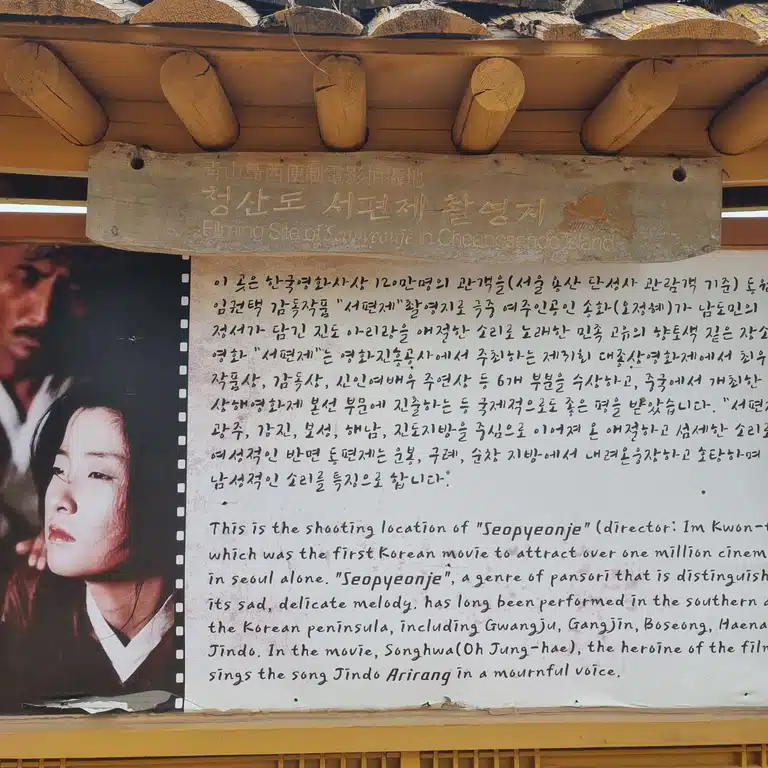 靑山島西便制電影拍攝地
청산도 서편제 촬영지
Filming Site of Seopyeonje in Cheongsando Island
이 곳은 한국영화사상 120만명의 관객을(서울 용산 단성사 관람객 기준)
임권택 감독작품 "서편제"촬영지로 극중 여주인공인 송화(오정혜)가 남도민의
정서가 담긴 진도 아리랑을 애절한 소리로 노래한 민족 고유의 향토색 짙은
영화 "서편제"는 영화진흥공사에서 주최하는 제31회 대종상영화제에서
작품상, 감독상, 신인여배우 주연상 등 6개 부분을 수상하고, 중국에서 개최한
상해영화제 본선 부문에 진출하는 등 국제적으로도 좋은 평을 받았습니다.
광주, 강진, 보성, 해남, 진도지방을 중심으로 이어져 온 애절하고 섬세한
여성적인 반면 동편제는 운봉, 구례, 순창 지방에서 내려온웅장하고 호탕하며
남성적인 소리를 특징으로 합니다.
This is the shooting location of "Seopyeonje" (director: Im Kwon-t
which was the first Korean movie to attract over one million cinem
in seoul alone. "Seopyeonje", a genre of pansori that is distinguish
its sad, delicate melody. has long been performed in the southern
the Korean peninsula, including Gwangju, Gangjin, Boseong, Haena
Jindo. In the movie, Songhwa(Oh Jung-hae), the heroine of the fil
sings the song Jindo Arirang in a mournful voice.